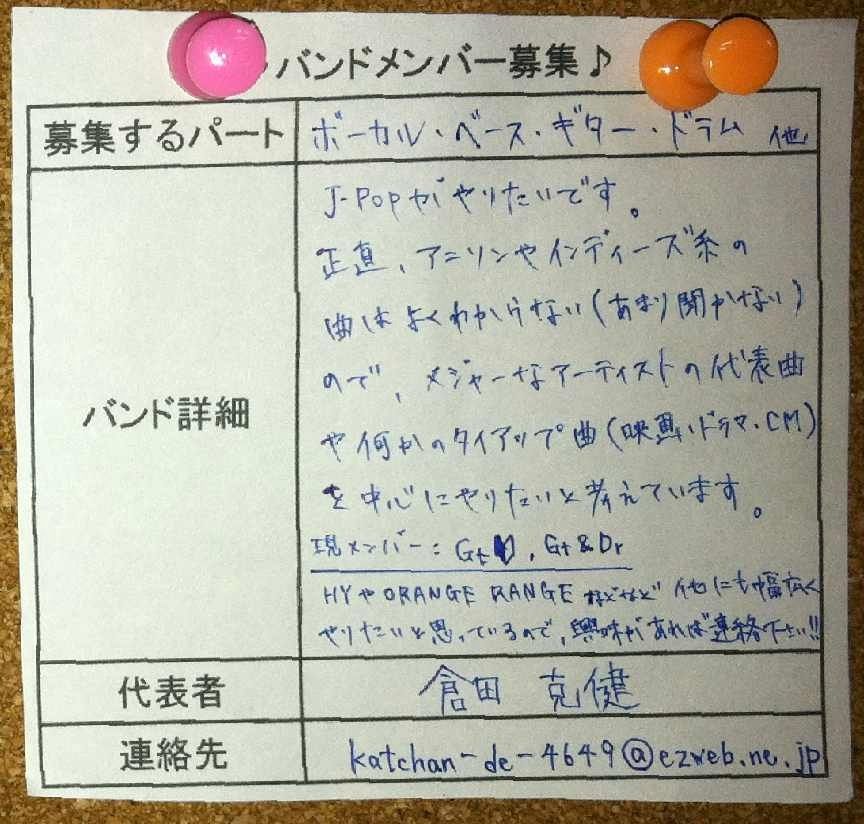 バンドメンバー募集♪
募集するパート
ボーカル・ベース・ギター・ドラム 他
バンド詳細
J-Popがやりたいです。
正直、アニソンやインディーズ系の
曲はよくわからない(あまり聞かない)
ので、メジャーなアーティストの代表曲
や何かのタイアップ曲(映画・ドラマ・CM)
を中心にやりたいと考えています。
現メンバー:Gt, Gt&Dr
HYやORANGE RANGEなどなど 他にも幅広く
やりたいと思っているので、興味があれば連絡下さい!!
代表者
倉田 克健
連絡先
katchan-de-4649@ezweb.ne.jp